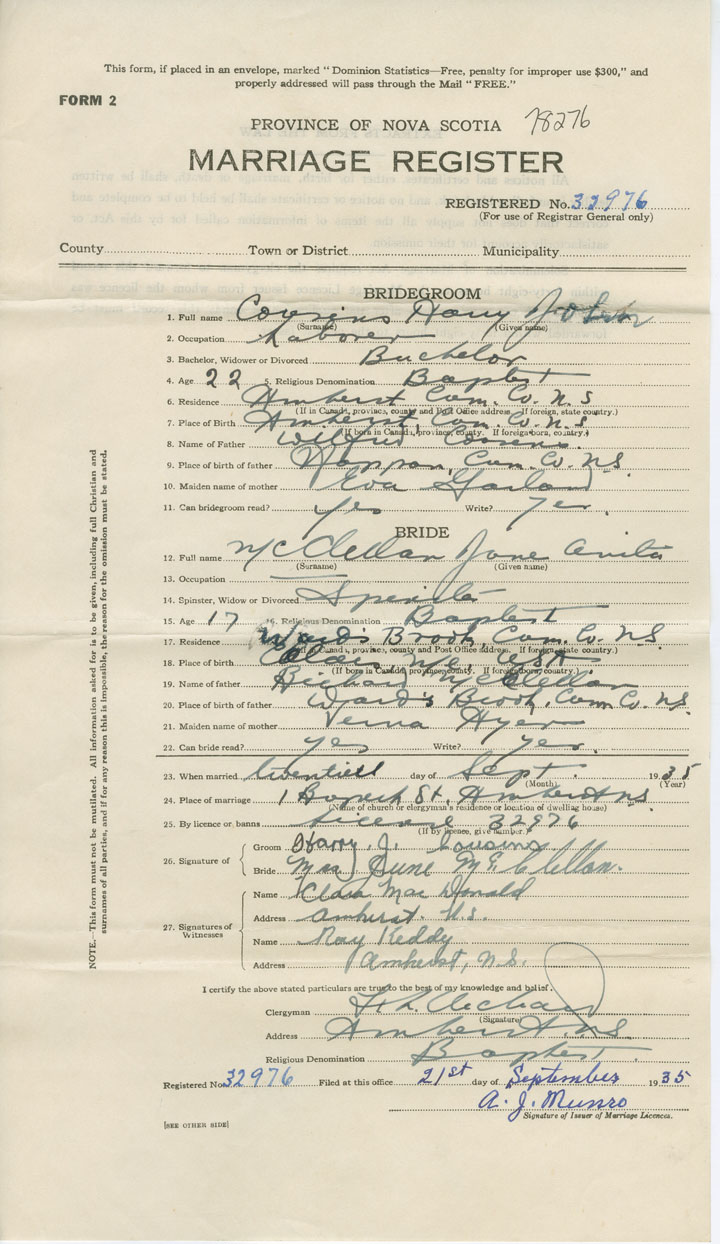 This form, if placed in an envelope, marked "Dominion Statistics—Free, penalty for improper use $300," and
properly addressed will pass through the Mail "FREE."
FORM 2
PROVINCE OF NOVA SCOTIA 78276
MARRIAGE REGISTER
REGISTERED No. 32976
(For use of Registrar General only)
County Town or District Municipality
BRIDEGROOM
1. Full name Cousins Harry John
(Surname) (Given name)
2. Occupation Laborer
3. Bachelor, Widower or Divorced Bachelor
4. Age 22 5. Religious Denomination Baptist
6. Residence Amherst Cum. Co. N.S
(If in Canada, province, county and Post Office address. If foreign, state country.)
7. Place of Birth Amherst, Cum. Co. N.S
(If born in Canada, province, county. If foreign born, country.)
8. Name of Father Wilfred Cousins
9. Place of birth of father Nappan, Cum. Co. N.S.
10. Maiden name of mother Eva
11. Can bridegroom read? yes Write? yes.
BRIDE
12. Full name McClellan June Anita
(Surname) (Given name)
13. Occupation
14. Spinster, Widow or Divorced Spinster
15. Age 17 16. Religious Denomination Baptist
17. Residence Wards Brook, Cum. Co. N.S.
(If in Canada, province, county and Post Office address. If foreign, state country.)
18. Place of birth Calais, Me, USA
(If born in Canada, province, county. If foreign born, country.)
19. Name of father McClellan
20. Place of birth of father Ward's Brook, Cum Co. N.S.
21. Maiden name of mother Verna
22. Can bride read? yes Write? yes.
23. When married twentieth day of Sept. 1935
(Month) (Year)
24. Place of marriage 1 St. Amherst N.S.
(Name of church or clergyman's residence or location of dwelling house)
25. By licence or banns License 32976
(If by licence, give number)
26. Signature of Groom Harry J. Cousins
Bride June McClellan.
27. Signatures of Witnesses Name Clara MacDonald
Address Amherst. N.S.
Name Ray Keddy
Address Amherst, N.S.
I certify the above stated particulars are true to the best of my knowledge and belief.
Clergyman
(Signature)
Address Amherst. N.S.
Religious Denomination Baptist
Registered No. 32976 Filed at this office 21st day of September 1935
A. J. Munro
Signature of Issuer of Marriage Licences.
[SEE OTHER SIDE]
NOTE.—This form must not be mutilated. All information asked for is to be given, including full Christian and
surnames of all parties, and if for any reason this is impossible, the reason for the omission must be stated.